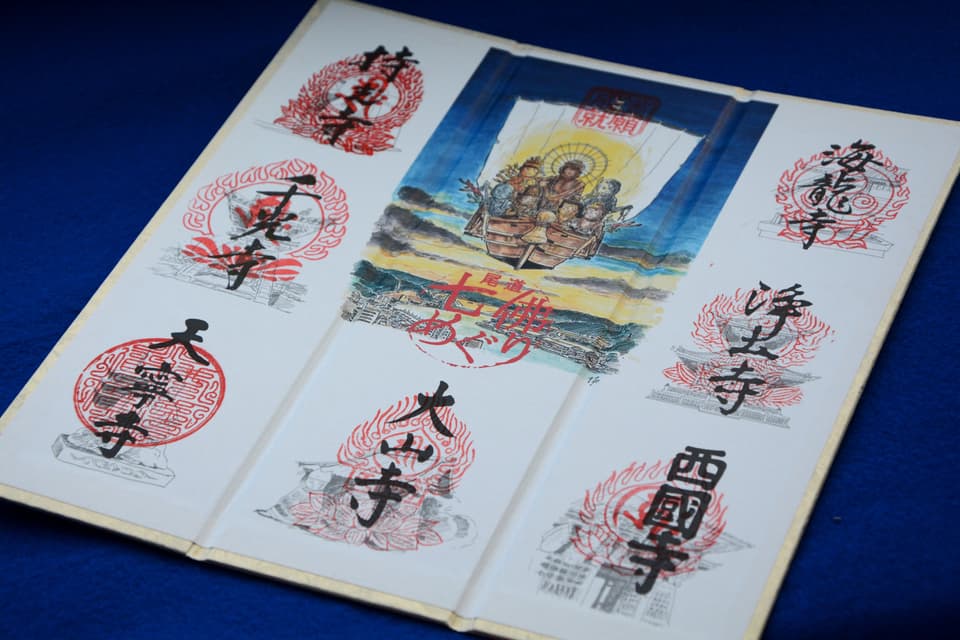 海龍寺
浄土寺
西國寺
願
成就
尾道
七佛
めぐり
大山寺
持光寺
千光寺
天寧寺